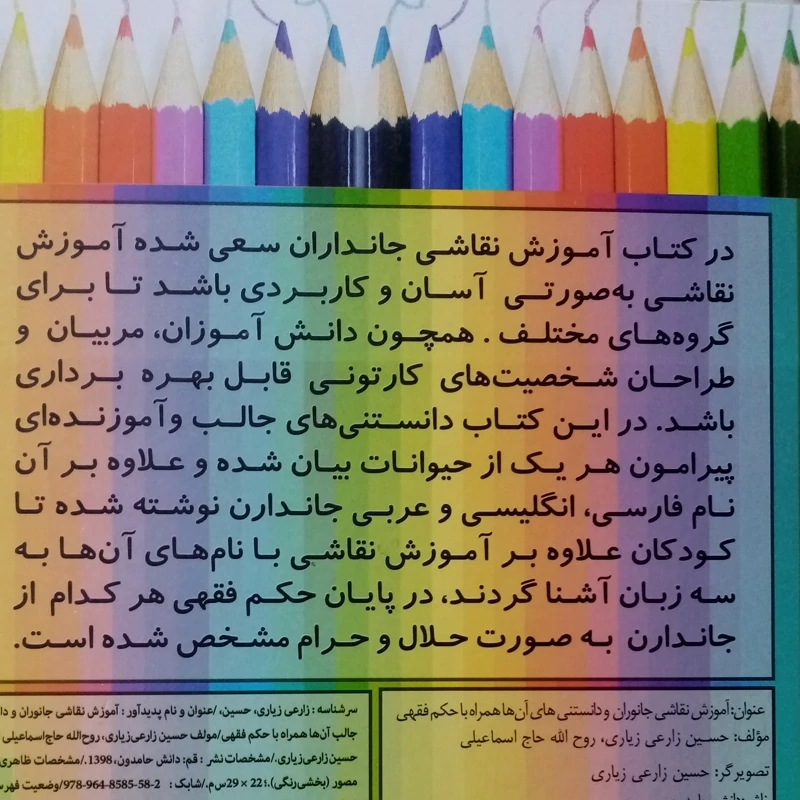 در کتاب آموزش نقاشی جانداران سعی شده آموزش
نقاشی به‌صورتی آسان و کاربردی باشد تا برای
گروه‌های مختلف . همچون دانش آموزان، مربیان و
طراحان شخصیت‌های کارتونی قابل بهره برداری
باشد. در این کتاب دانستنی‌های جالب وآموزنده‌ای
پیرامون هر یک از حیوانات بیان شده و علاوه بر آن
نام فارسی، انگلیسی و عربی جاندارن نوشته شده تا
کودکان علاوه بر آموزش نقاشی با نام‌های آن‌ها به
سه زبان آشنا گردند، در پایان حکم فقهی هر کدام از
جاندارن به صورت حلال و حرام مشخص شده است.
عنوان: آموزش نقاشی جانوران و دانستنی های آن ها همراه با حکم فقهی
مؤلف: حسین زارعی زیاری، روح الله حاج اسماعیلی
تصویرگر: حسین زارعی زیاری
سرشناسه : زارعی زیاری، حسین، /عنوان و نام پدیدآور : آموزش نقاشی جانوران و
جالب آن‌ها همراه با حکم فقهی/مولف حسین زارعی‌زیاری، روح‌الله حاج‌اسماعیلی
حسین زارعی‌زیاری./مشخصات نشر : قم: دانش حامدون، 1398./مشخصات ظاهری
مصور (بخشی‌رنگی).؛ 22 × 29س‌م./شابک : 978-964-8585-58-2/وضعیت